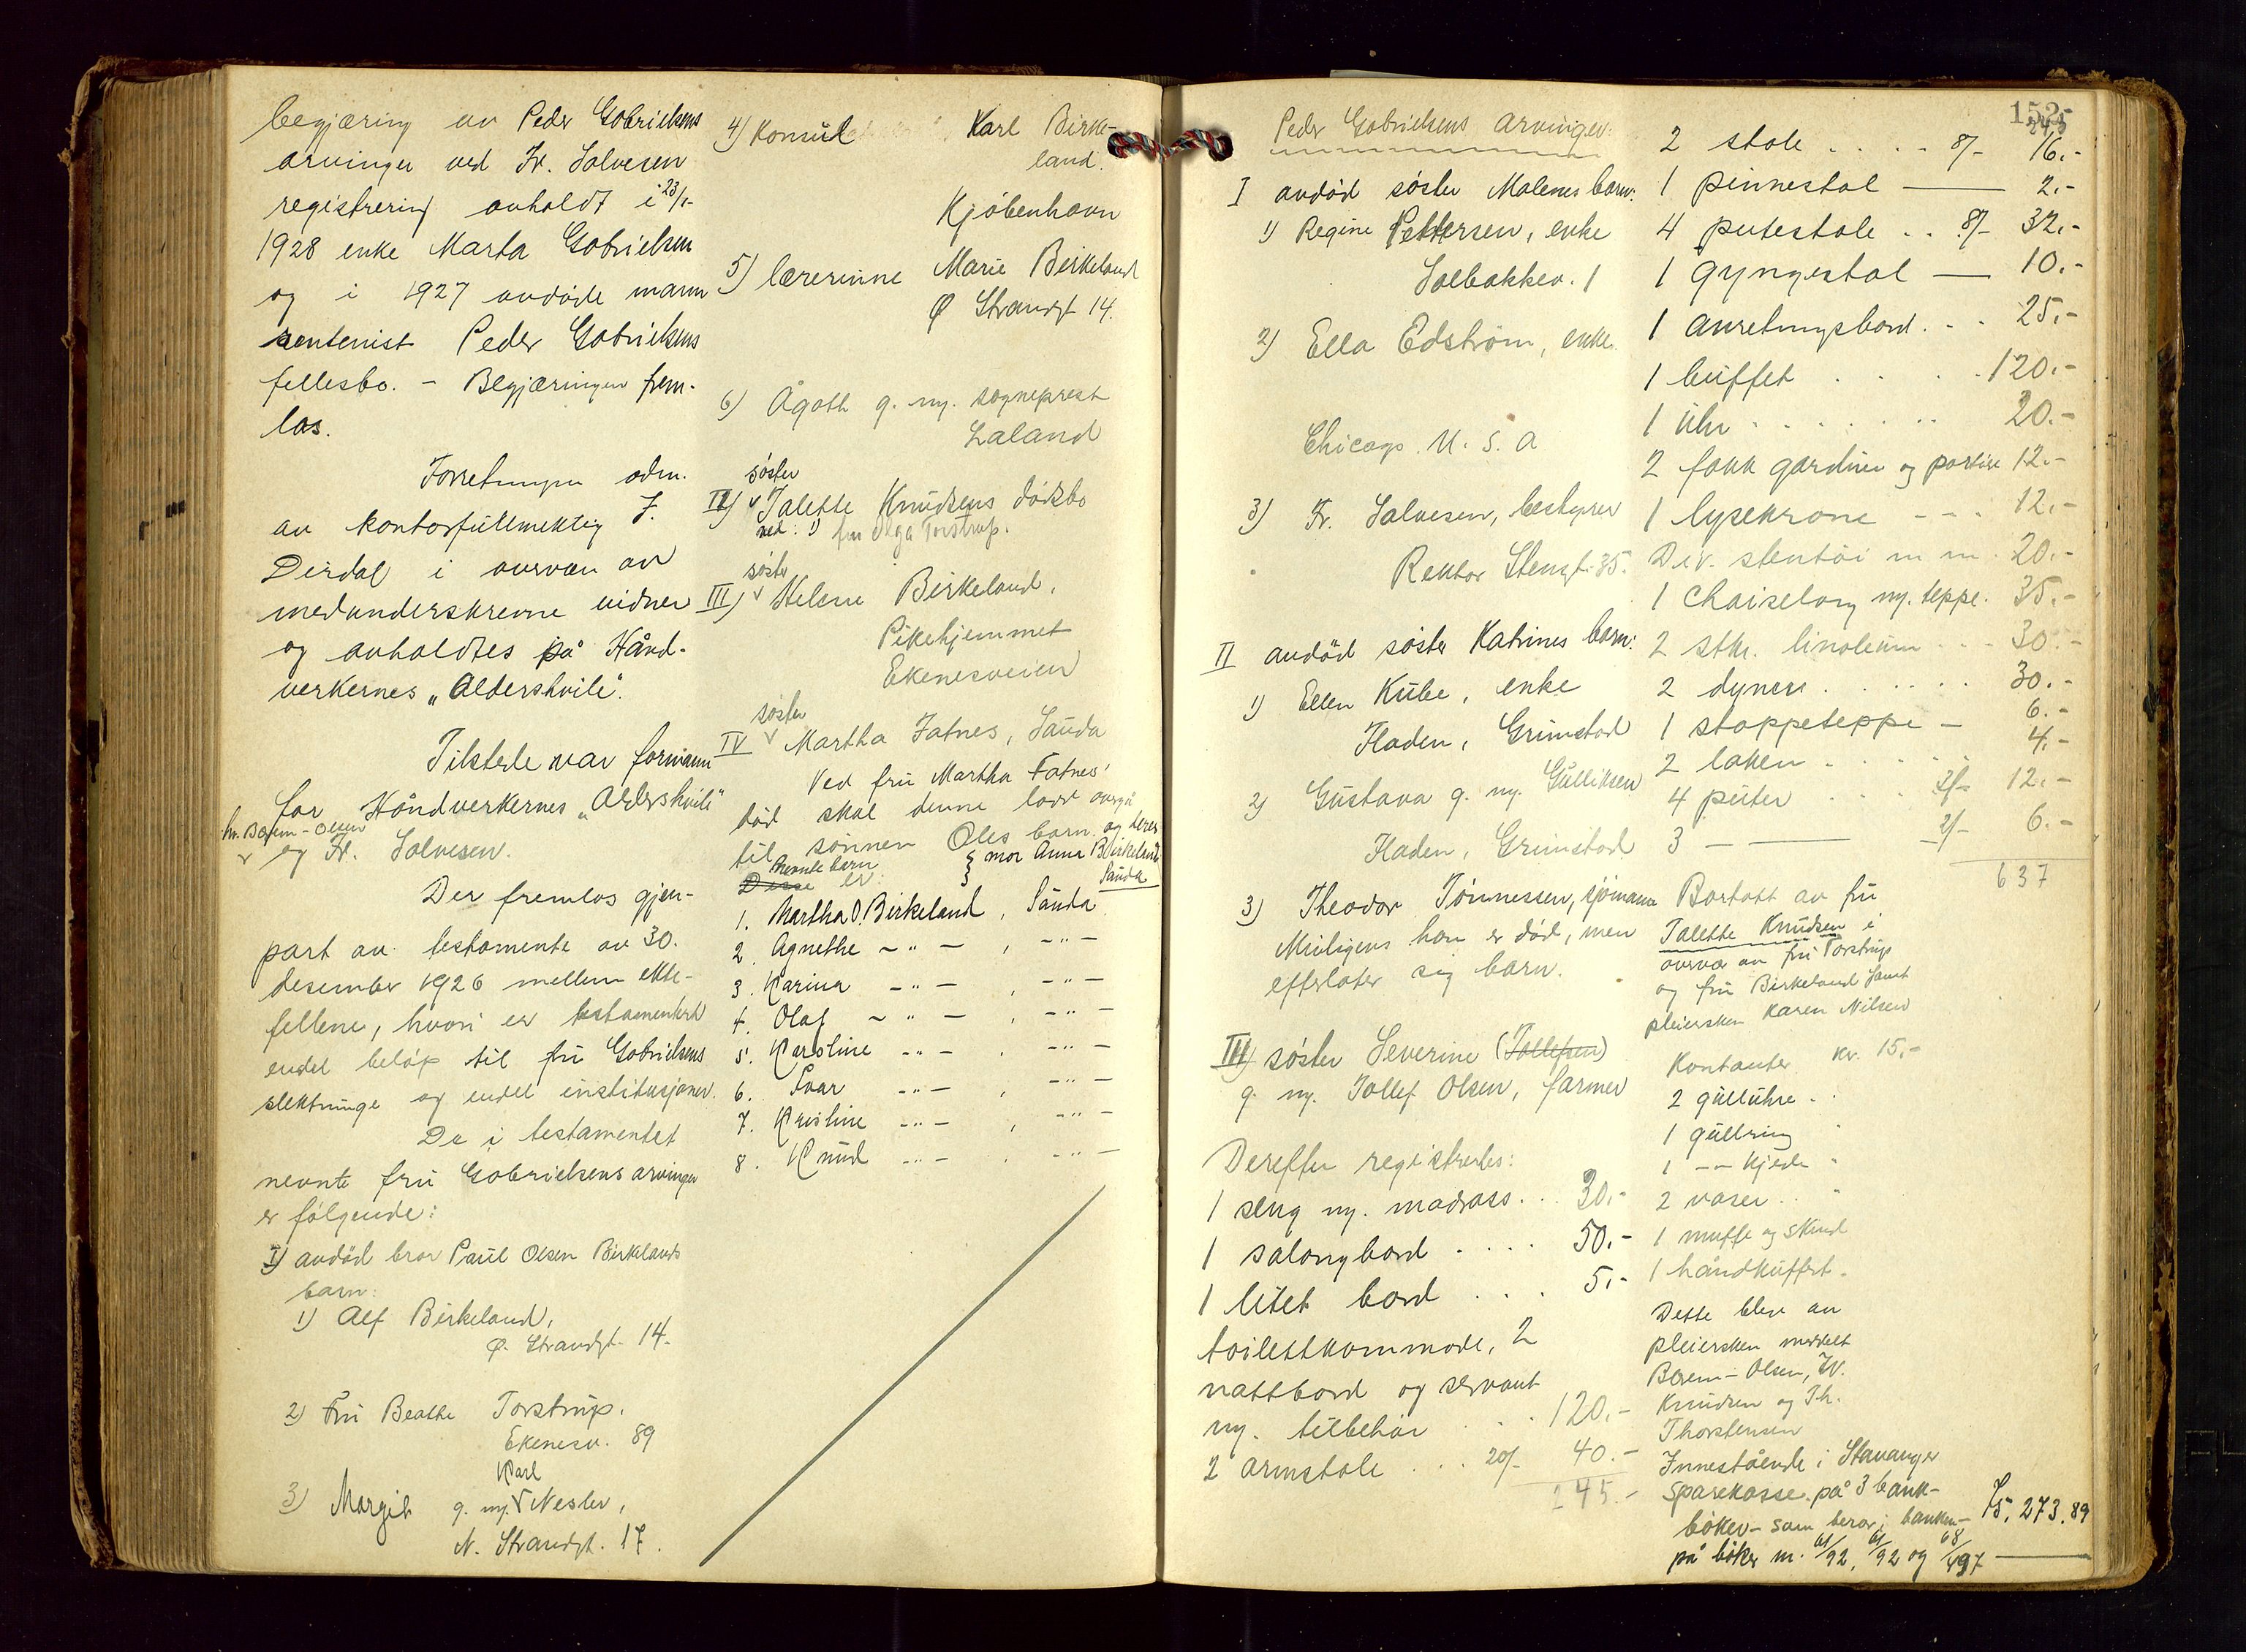 begjæring av Peder Gabrielsens
arvinger ved Fr. Salvesen
registrering avholdt i 23/1-
1928 enke Marta Gabrielsen
og i 1927 avdøde mann
rentenist Peder Gabrielsens
fellesbo. - Begjæringen frem-
las.
Forretningen adm.
av kontorfullmektig J.
Dirdal i overvær av
medunderskrevne vidner
og avholdtes på Hånd-
verkernes „Aldershvile".
Tilstede var formann
for Håndverkernes „Aldershvile"
hr. Borem-Olsen
og Fr. Salvesen.
Der fremlas gjen-
part av testamente av 30.
desember 1926 mellem ekte-
fellene, hvori er testamentert
endel beløp til fru Gabrielsens
slektninge og endel institusjoner.
De i testamentet
nevnte fru Gabrielsens arvinger
er følgende:
I) avdød bror Paul Olsen Birkelands
barn:
1) Alf Birkeland,
Ø. Strandgt. 14.
2) Fru Beathe Torstrup.
Ekenesv. 89
Karl
3) Margit g. m. Nesler,
N. Strandgt. 17.
4) Konsul Karl Birke-
land.
Kjøbenhavn
5) lærerinne Marie Birkeland
Ø Strandgt 14.
6) Ågoth g. m. sogneprest
Laland
søster
II) Talette Knudsens dødsbo
ved: 1) fru Olga Torstrup.
søster
III) Helene Birkeland,
Pikehjemmet
Ekenesveien
søster
IV Martha Fatnes, Sauda
Ved fru Martha Fatnes'
død skal denne lodd overgå
til sønnen Oles barn og deres
mor Anna Birkeland
Sauda
Nevnte barn
Disse er:
1. Martha O. Birkeland, Sauda
2. Agnethe -"- , -"-
3. Karina -"- , -"-
4. Olaf -"- , -"-
5. Karoline -"- , -"-
6. Ivar -"- , -"-
7. Kristine -"- , -"-
8. Knud -"- , -"-
152
Peder Gabrielsens arvinger:
I avdød søster Malenes barn:
1) Regine Pettersen, enke
Solbakkev. 1
2) Ella Edstrøm, enke
Chicago. U. S. A
3) Fr. Salvesen, bestyrer
Rektor Stengt. 35.
II avdød søster Katrines barn:
1) Ellen Kube, enke
Fladen, Grimstad
2) Gustava g. m. Gulliksen
Fladen, Grimstad
3) Theodor Tønnessen, sjømann
Muligens han er død, men
efterlater sig barn.
III) søster Severine (Tollefsen)
g. m. Tollef Olsen, farmer
Derefter registrertes:
1 seng m. madrass . . 30.-
1 salongbord . . . . 50.-
1 litet bord . . . 5.-
toilettkommode, 2
nattbord og servant
m. tilbehør . . . 120.-
2 armstole . . . 20/- 40.-
245.-
245
2 stole . . . . . 8/- 16.-
1 pinnestol — 2.-
4 putestole . . 8/- 32.-
1 gyngestol — 10.-
1 anretningsbord . . . 25.-
1 buffet . . . . 120.-
1 Uhr . . . . . . 20.-
2 fakk gardiner og portiere 12.-
1 lysekrone - - - 12.-
Div. stentøi m m . 20.-
1 Chaiselong m. teppe. 35.-
2 stkr. linoleum . . . 30.-
2 dyner . . . . . . 30.-
1 stoppeteppe - 6.-
2 laken . . . . . 4.-
4 puter . . . . 3/- 12.-
3 — — 2/- 6.-
637
Bortatt av fru
Talette Knudsen i
overvær av fru Torstrup
og fru Birkeland samt
pleiersken Karen Nilsen
Kontanter kr. 15.-
2 gulluhre . .
1 gullring "
1 -"- kjede "
2 vaser . . "
1 muffe og skind
1 håndkuffert.
Dette blev av
pleiersken meddelt
Borem-Olsen, Fr.
Knudsen og Th.
Thorstensen
Innestående i Stavanger
Sparekasse på 3 bank-
bøker - som beror i banken- 75.273.89
på bøker nr. 61/92, 61/92 og 68/497 —